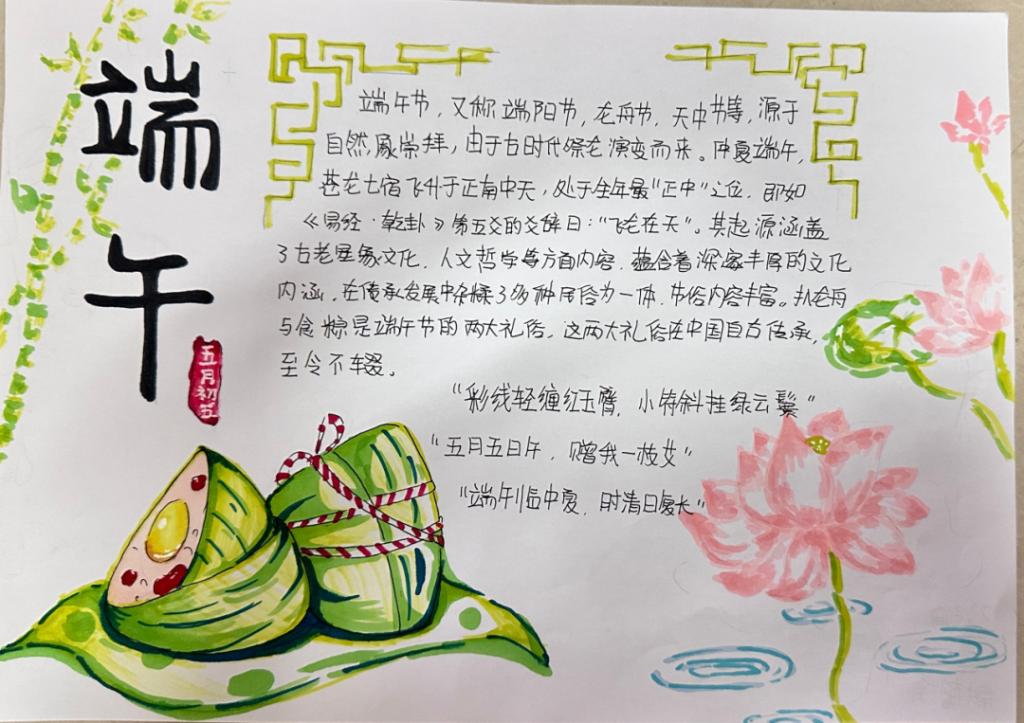 端午
五月初五
端午节，又称端阳节，龙舟节，天中节等，源于
自然天象崇拜，由于古时代祭龙演变而来。仲夏端午，
苍龙七宿飞升于正南中天，处于全年最“正中”之位，即如
《易经·乾卦》第五爻的爻辞曰：“飞龙在天”。其起源涵盖
了古老星象文化，人文哲学等方面内容，蕴含着深邃丰厚的文化
内涵，在传承发展中杂糅了多种民俗为一体，节俗内容丰富。扒龙舟
与食粽是端午节的两大礼俗，这两大礼俗在中国自古传承，
至今不辍。
“彩线轻缠红玉臂，小符斜挂绿云鬟”
“五月五日午，赠我一枝艾”
“端午临中夏，时清日复长”